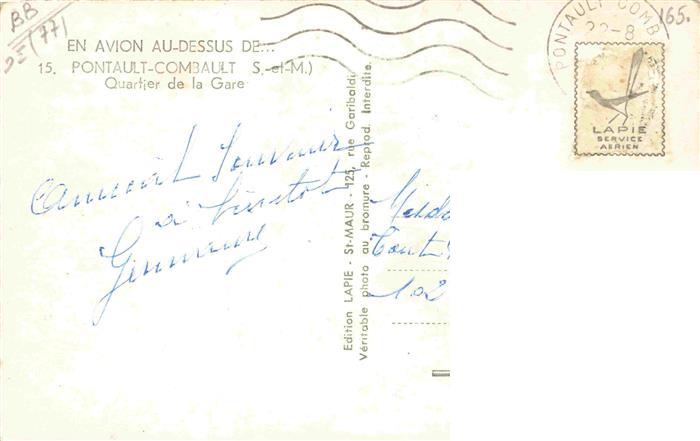 BB
(77)
EN AVION AU-DESSUS DE...
15. PONTAULT-COMBAULT S.-et-M.)
Quartier de la Gare
PONTAULT-COMB
22-8
165.
LAPIE
SERVICE
AERIEN
Edition LAPIE - St-MAUR - 125, rue Garibaldi
Véritable photo au bromure - Reprod. Interdite.
Amical Souvenir
à
Germaine
102